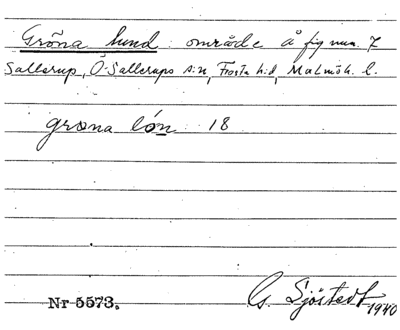 Gröna lund område å fig num. 7
Sallerup, Ö. Sallerups s:n, Frosta h:d, Malmöh. l.
grøna lón 18
Nr 5573.
G. Sjöstedt 1940